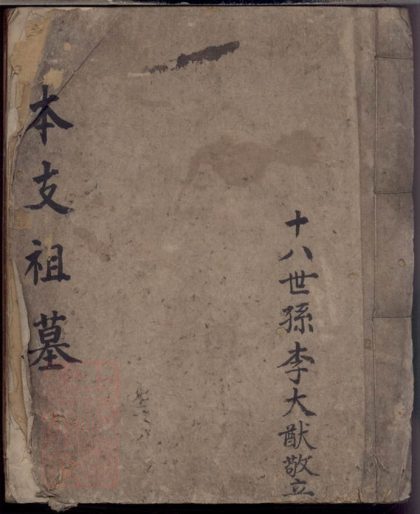 十八世孫李大猷敬立
本支祖墓